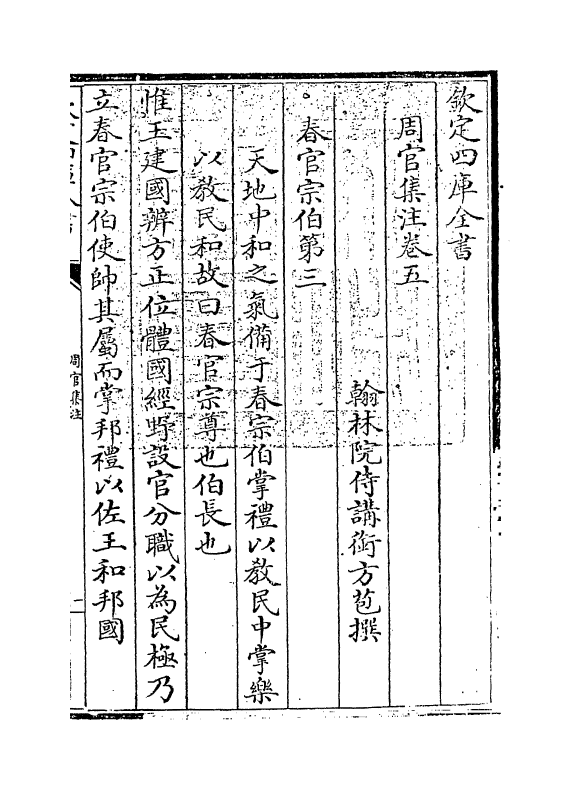 欽定四庫全書
周官集注卷五
翰林院侍講銜方苞撰
春官宗伯第三
天地中和之氣備于春宗伯掌禮以教民中掌樂
以教民和故曰春官宗尊也伯長也
惟王建國辨方正位體國經野設官分職以為民極乃
立春官宗伯使帥其屬而掌邦禮以佐王和邦國
周官集注